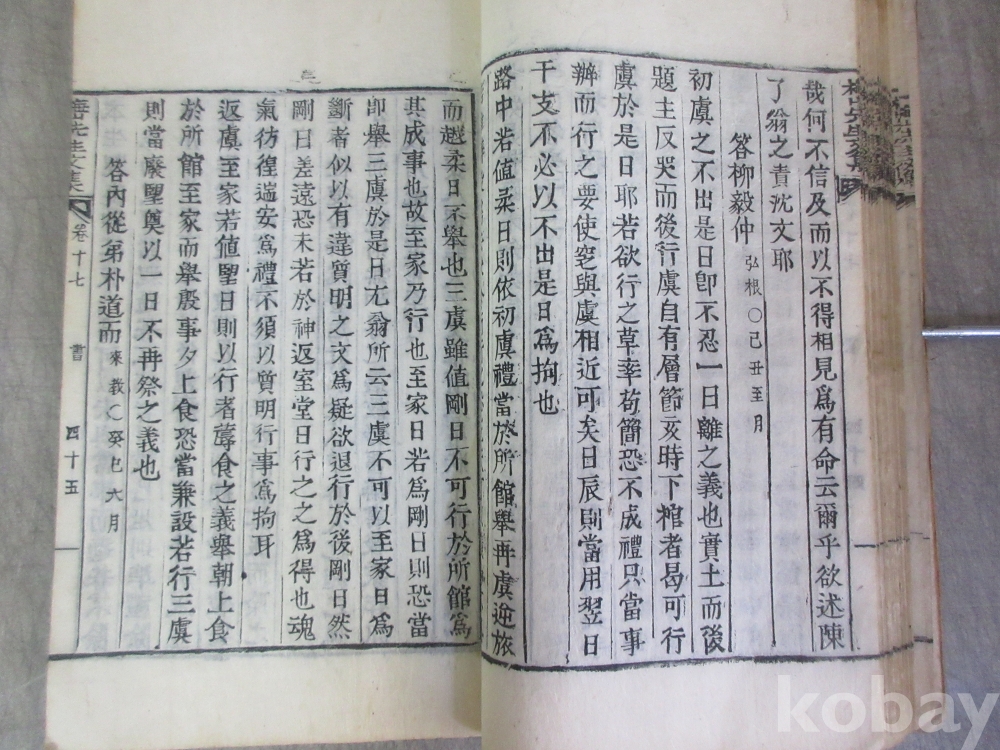 哉何不信及而以不得相見爲有命云爾乎欲述陳
了翁之責沈文耶
答柳毅仲 弘根○己丑至月
初虞之不出是日卽不忍一日離之義也實土而後
題主反哭而後行虞自有層節亥時下棺者曷可行
虞於是日耶若欲行之草率苟簡恐不成禮只當事
辦而行之要使窆與虞相近可矣日辰則當用翌日
干支不必以不出是日爲拘也
路中若値柔日則依初虞禮當於所館舉再虞迎旅
而越柔日不舉也三虞雖値剛日不可行於所館爲
其成事也故至家乃行也至家日若爲剛日則恐當
卽舉三虞於是日尤翁所云三虞不可以至家日爲
斷者似以有違質明之文爲疑欲退行於後剛日然
剛日差遠恐未若於神返室堂日行之之爲得也魂
氣彷徨遄安爲禮不須以質明行事爲拘耳
返虞至家若値朢日則以行者蓐食之義舉朝上食
於所館至家而舉殷事夕上食恐當兼設若行三虞
則當廢朢奠以一日不再祭之義也
答內從弟朴道而 來教○癸巳六月
先生文集
卷十七
書
四十五
kobay